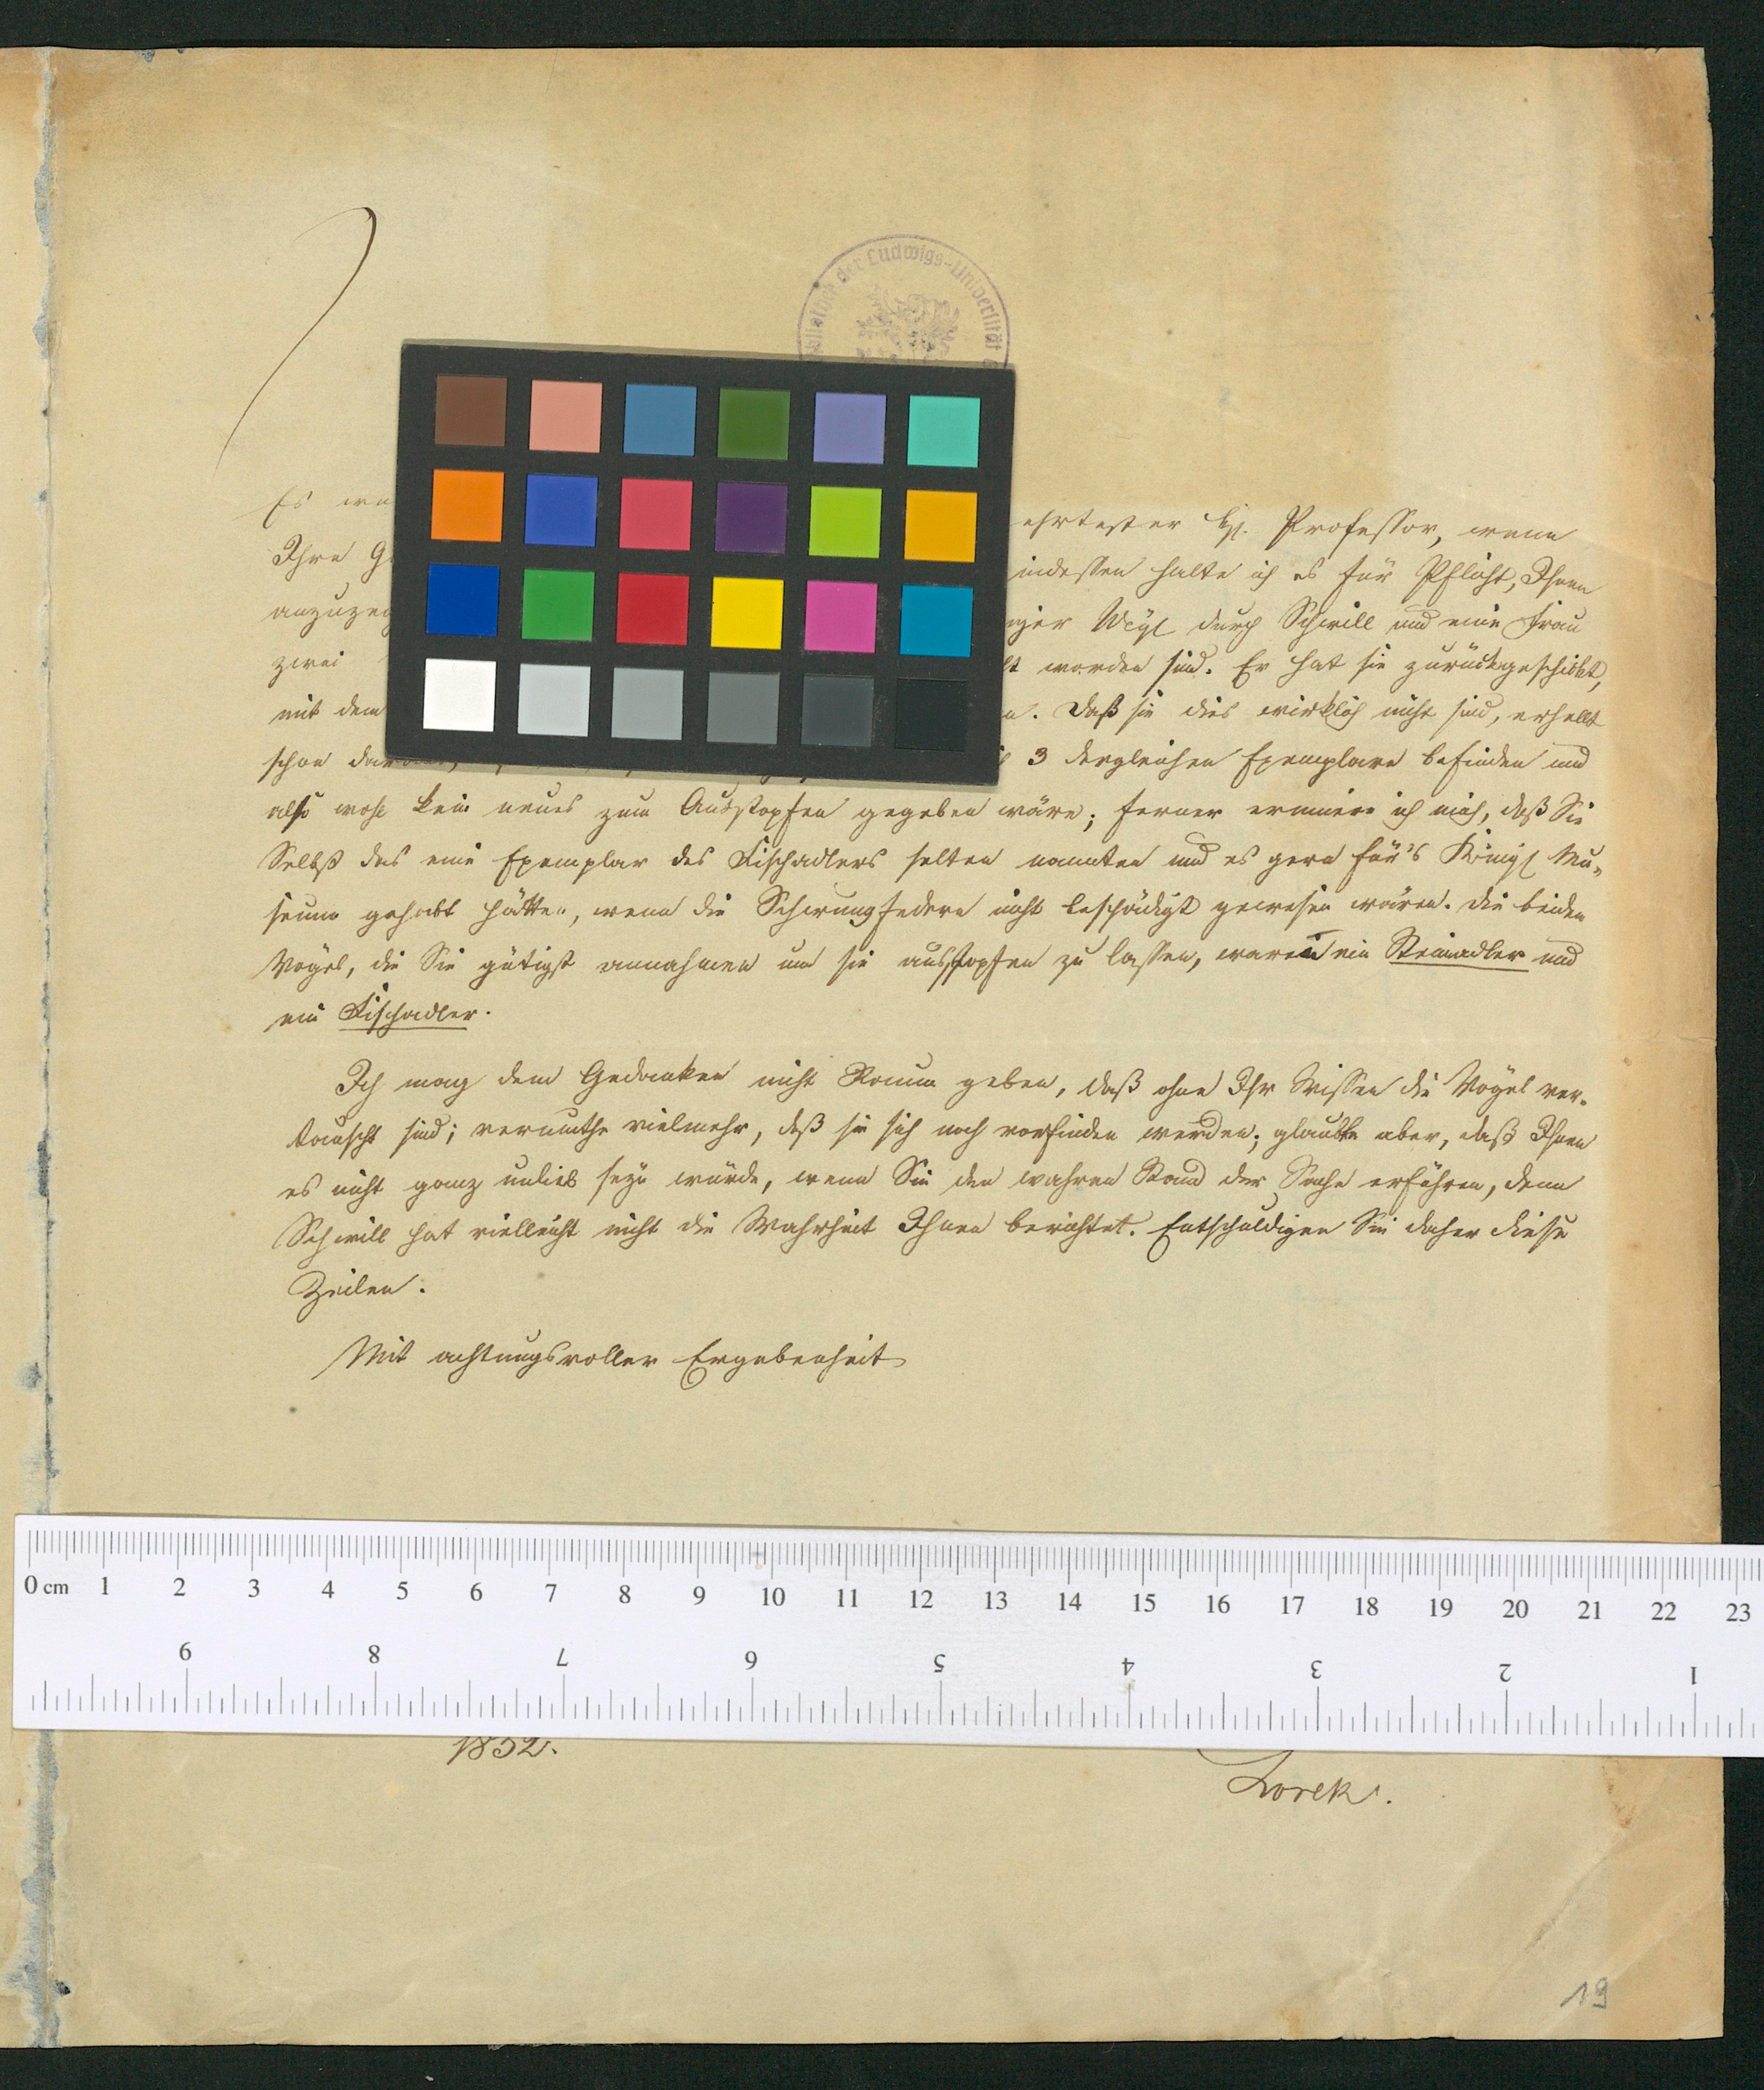 Bibliothek der Ludwigs-Universität
Es
ehrtester H. Professor, wenn
Ihre
indessen halte ich es für Pflicht, Ihnen
durch Schwill und eine Frau
zwei
worden sind. Er hat sie zurückgeschickt,
mit dem
Daß sie dies wirklich nicht sind, erhellt
schon
3 dergleichen Exemplare befinden und
also wohl kein neues zum Ausstopfen gegeben wäre; ferner erinnere ich mich, daß Sie
Selbst das eine Exemplar des Fischadlers selten nannten und es gern für's Königl Mu-
seum gehabt hätten, wenn die Schwungfedern nicht beschädigt gewesen wären. Die beiden
Vögel, die Sie gütigst annahmen um sie ausstopfen zu lassen, waren ein Steinadler und
ein Fischadler.
Ich mag dem Gedanken nicht Raum geben, daß ohne Ihr Wissen die Vögel ver-
tauscht sind; vermuthe vielmehr, daß sie sich noch vorfinden werden; glaubte aber, daß Ihnen
es nicht ganz unlieb seyn würde, wenn Sie den wahren Stand der Sache erführen, denn
Schwill hat vielleicht nicht die Wahrheit Ihnen berichtet. Entschuldigen Sie daher diese
Zeilen.
Mit achtungsvoller Ergebenheit
0 cm 1 2 3 4 5 6 7 8 9 10 11 12 13 14 15 16 17 18 19 20 21 22 23
9 8 7 6 5 4 3 2 1
1832.
Lorek.
19